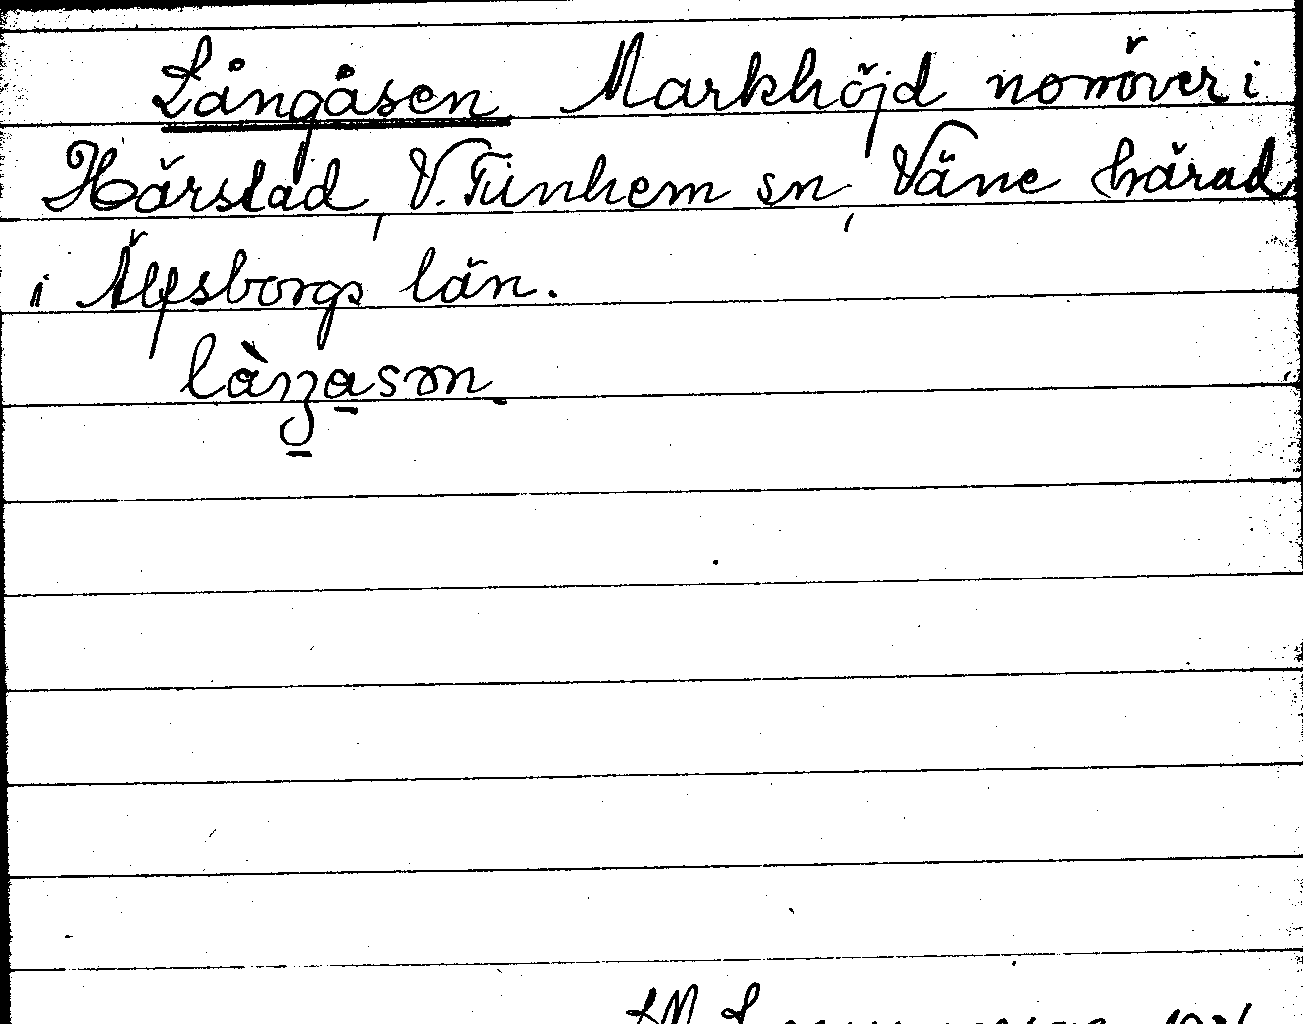 Långåsen Markhöjd norröver i
Härstad, V. Tunhem sn, Väne härad
i Älfsborgs län.